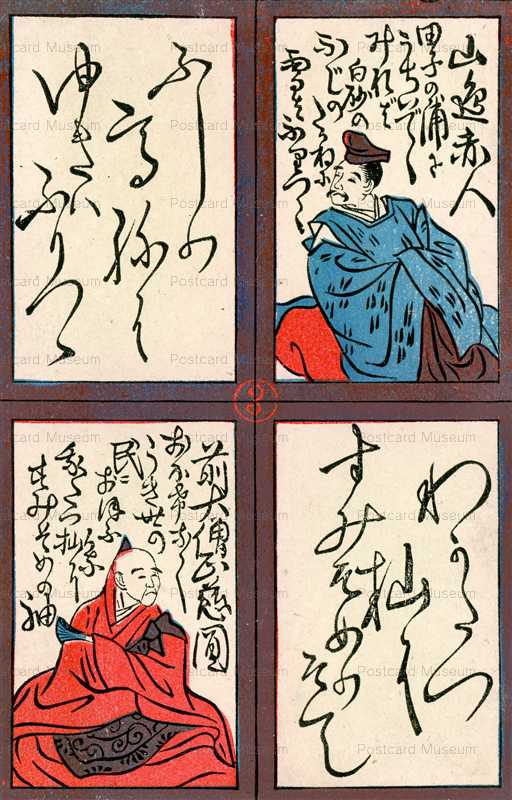 山邉赤人
田子の浦に
うちいでゝ
みれば
白妙の
ふじのたかねに
雪はふりつゝ
ふしの
高祢に
ゆきハ
ふりつゝ
わかたつ
杣に
すみそめのそて
前大僧正慈圓
おほけなく
うき世の
民に
おほふ
かな
我たつ杣に
すみぞめの袖
Postcard Museum